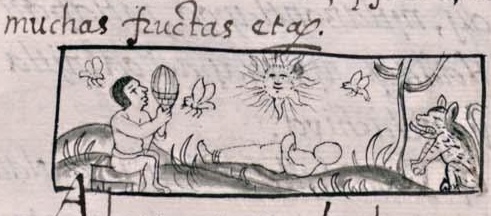 muchas fructas eta.
A